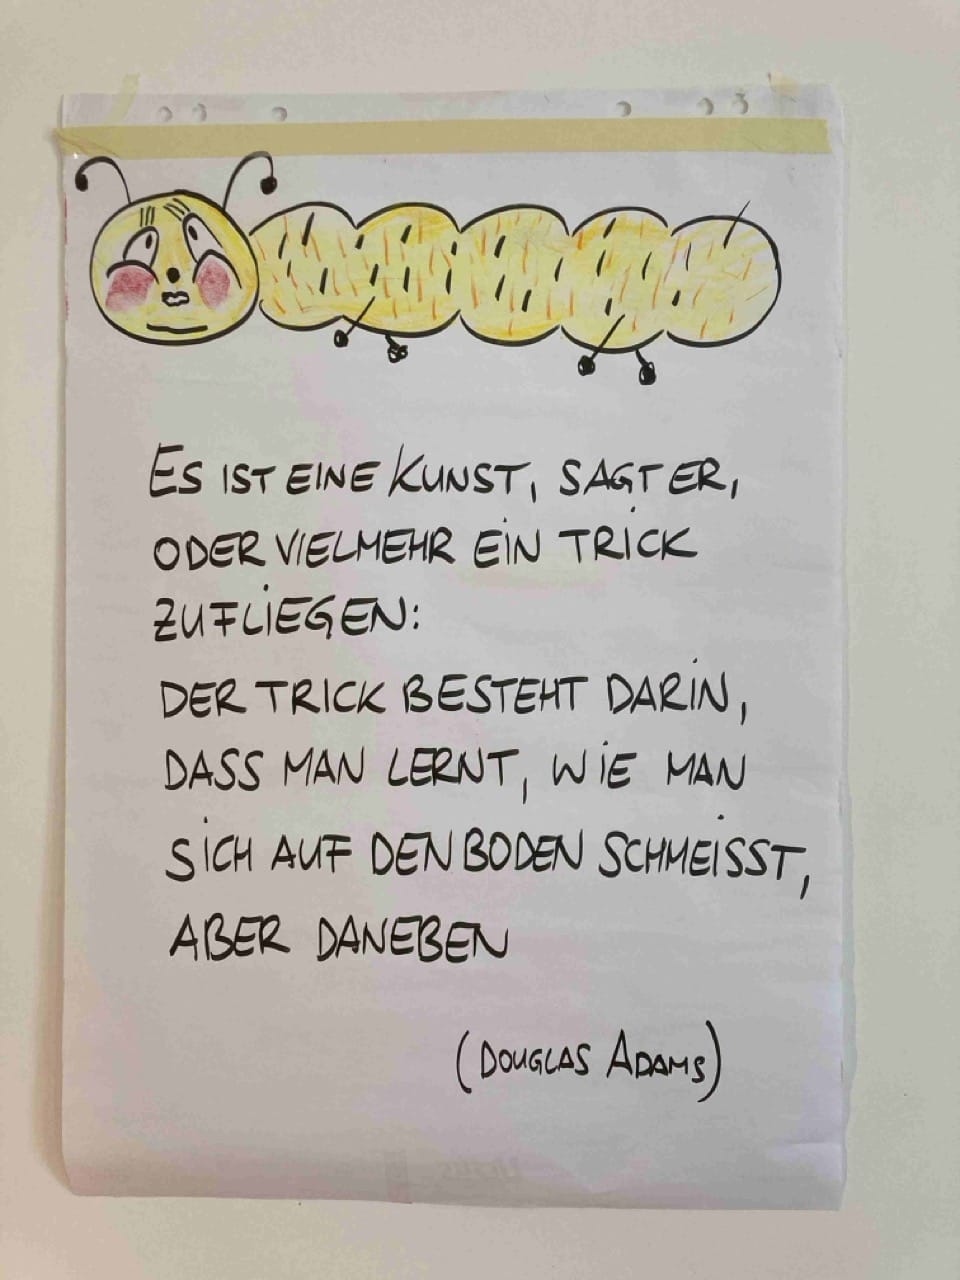 ES IST EINE KUNST, SAGT ER,
ODER VIELMEHR EIN TRICK
ZU FLIEGEN:
DER TRICK BESTEHT DARIN,
DASS MAN LERNT, WIE MAN
SICH AUF DEN BODEN SCHMEISST,
ABER DANEBEN
(DOUGLAS ADAMS)